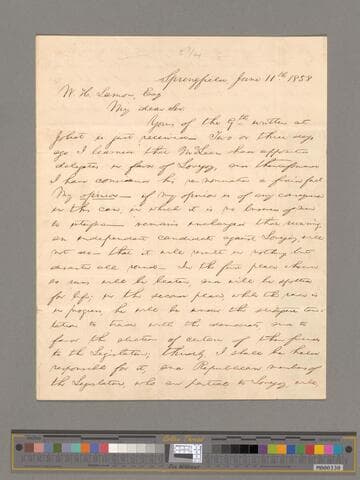 Springfield, June 11th 1858
W. H. Lamon, Esq
My dear Sir:
Yours of the 9th written at
Joliet is just received. Two or three days
ago I learned that McLean had appointed
delegates in favor of Lovejoy, and thenceforward
I have considered his re-nomination a fixed fact.
My opinion - if my opinion is of any consequence
in this case, in which it is no business of mine
to interfere - remains unchanged that running
an independent candidate against Lovejoy, will
not do - that it will result in nothing but
disaster all round. In the first place whoever
so runs will be beaten, and will be spotted
for life; in the second place, while the race is
in progress, he will be under the strongest temp-
tation to trade with the democrats, and to
favor the election of certain of their friends
to the Legislature; thirdly, I shall be held
responsible for it, and Republican members of
the Legislature, who are partial to Lovejoy, will,
M00330